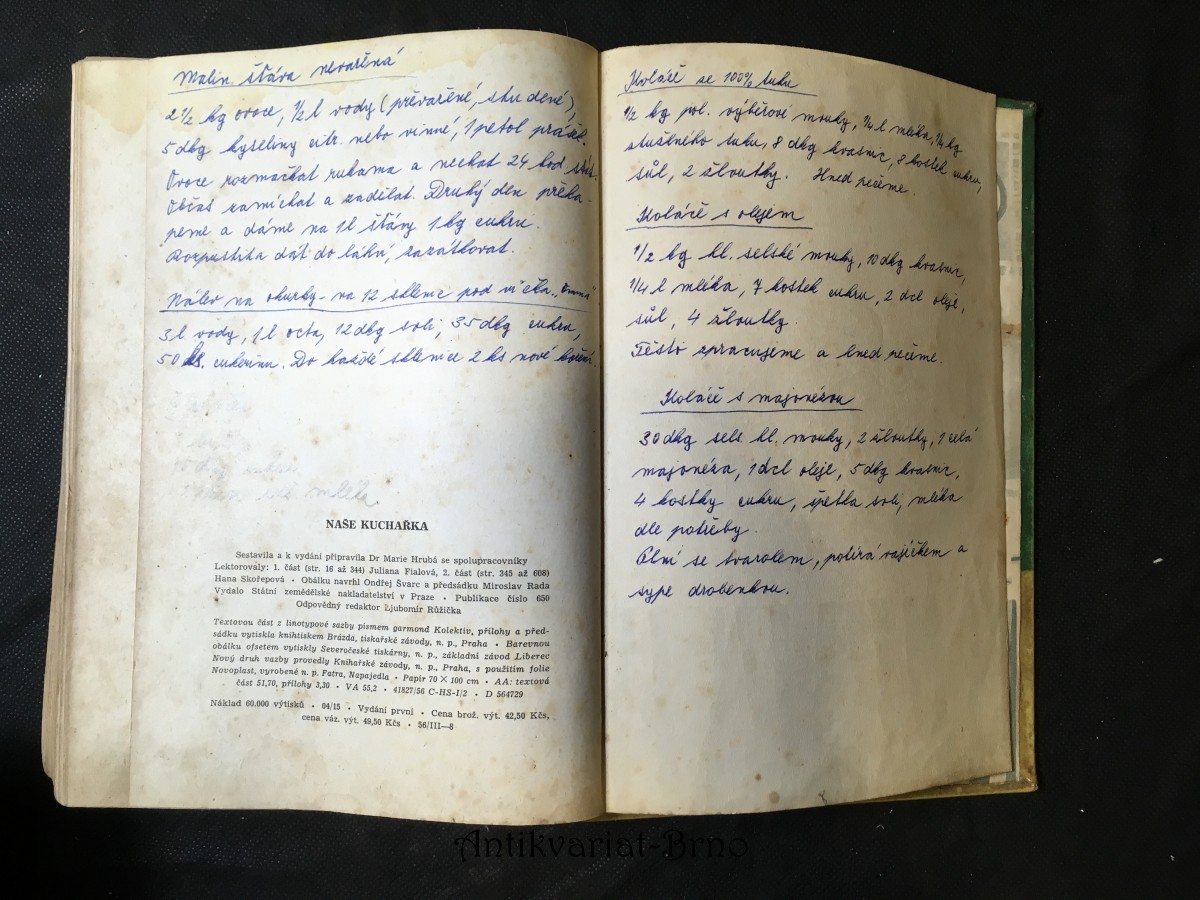 Malin. šťáva nevařená
2 1/2 kg ovoce, 1/2 l vody (převařené, studené),
5 dkg kyseliny citr. nebo vinné, 1 petol prášk.
Ovoce rozmačkat rukama a nechat 24 hod. stát.
Občas zamíchat a zadělat. Druhý den překa-
peme a dáme na 1 l šťávy 1 kg cukru.
dát do láhví, zazátkovat.
Nálev na okurky - na 12 sklenic pod víčka "Omnia"
3 l vody, 1 l octa, 12 dkg soli, 35 dkg cukru,
50 ks. cukerinu. Do každé sklenice 2 ks nové koření
mléka.
NAŠE KUCHAŘKA
Sestavila a k vydání připravila Dr Marie Hrubá se spolupracovníky
Lektorovaly: 1. část (str. 16 až 344) Juliana Fialová, 2. část (str. 345 až 608)
Hana Skořepová • Obálku navrhl Ondřej Švarc a předsádku Miroslav Rada
Vydalo Státní zemědělské nakladatelství v Praze • Publikace číslo 650
Odpovědný redaktor Ljubomir Růžička
Textovou část z linotypové sazby písmem garmond Kolektiv, přílohy a před-
sádku vytiskla knihtiskem Brázda, tiskařské závody, n. p., Praha • Barevnou
obálku ofsetem vytiskly Severočeské tiskárny, n. p., základní závod Liberec
Nový druh vazby provedly Knihařské závody, n. p., Praha, s použitím folie
Novoplast, vyrobené n. p. Fatra, Napajedla • Papír 70 × 100 cm • AA: textová
část 51,70, přílohy 3,30 • VA 55,2 • 41827/56 C-HS-I/2 • D 564729
Náklad 60.000 výtisků • 04/15 • Vydání první • Cena brož. výt. 42,50 Kčs,
cena váz. výt. 49,50 Kčs • 56/III—8
Koláče se 100% tuku
1/2 kg pol. výběrové mouky, 1/4 l mléka, 1/4 kg
ztuženého tuku, 8 dkg kvasnic, 8 kostek cukru,
sůl, 2 žloutky. Hned pečeme.
Koláče s olejem
1/2 kg hl. selské mouky, 10 dkg kvasnic,
1/4 l mléka, 7 kostek cukru, 2 dcl oleje,
sůl, 4 žloutky.
Těsto zpracujeme a hned pečeme.
Koláče s majonézou
30 dkg sels. hl. mouky, 2 žloutky, 1 celá
majonéza, 1 dcl oleje, 5 dkg kvasnic,
4 kostky cukru, špetka soli, mléka
dle potřeby.
Plní se tvarohem, potírá vajíčkem a
sype drobenkou.
Antikvariat-Brno